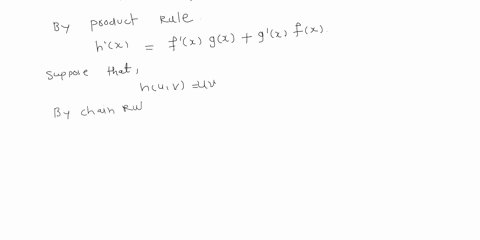 By product Rule.
h'(x) = f'(x) g(x) + g'(x) f(x).
suppose that,
h(u,v) = uv
By chain Rul